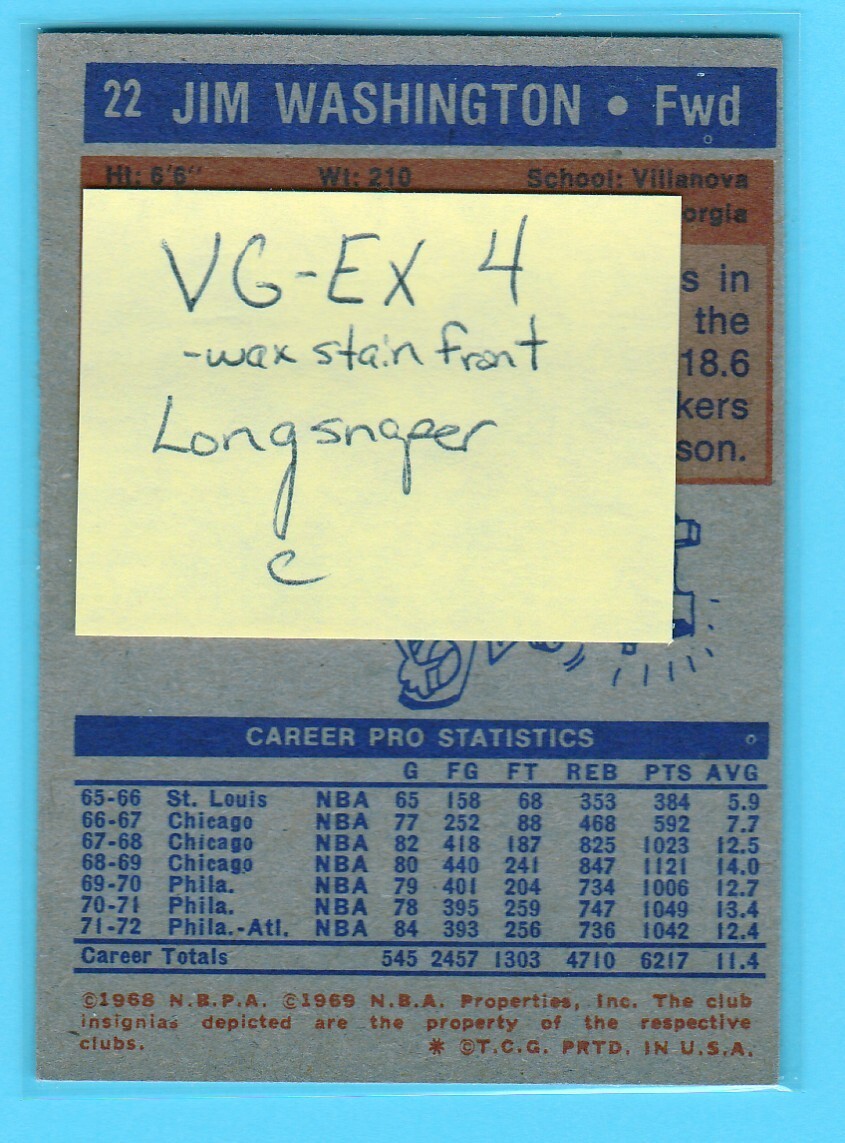 22 JIM WASHINGTON • Fwd
Ht: 6'6" Wt: 210 School: Villanova
orgia
s in
the
18.6
kers
son.
VG-EX 4
-wax stain front
Longsnaper
C
CAREER PRO STATISTICS
G FG FT REB PTS AVG
65-66 St. Louis NBA 65 158 68 353 384 5.9
66-67 Chicago NBA 77 252 88 468 592 7.7
67-68 Chicago NBA 82 418 187 825 1023 12.5
68-69 Chicago NBA 80 440 241 847 1121 14.0
69-70 Phila. NBA 79 401 204 734 1006 12.7
70-71 Phila. NBA 78 395 259 747 1049 13.4
71-72 Phila.-Atl. NBA 84 393 256 736 1042 12.4
Career Totals 545 2457 1303 4710 6217 11.4
©1968 N.B.P.A. ©1969 N.B.A. Properties, Inc. The club
insignias depicted are the property of the respective
clubs. * ©T.C.G. PRTD. IN U.S.A.